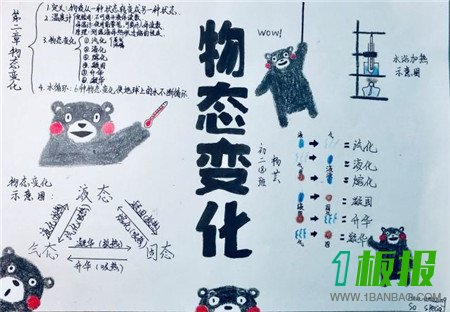 第二章物态变化
1. 定义: 物质从一种状态转变成另一种状态.
2. 温度计
3. 物态变化
① 汽化
② 液化
③ 熔化
④ 凝固
⑤ 升华
⑥ 凝华
4. 水循环: 6种物态变化, 使地球上的水不断循环
物态变化
wow!
水浴加热
示意图
初二
物态变化
示意图:
液态
气态
固态
凝华(放热)
升华(吸热)
= 汽化
= 液化
= 熔化
= 凝固
= 升华
= 凝华
1板报
WWW.1BANBAO.COM